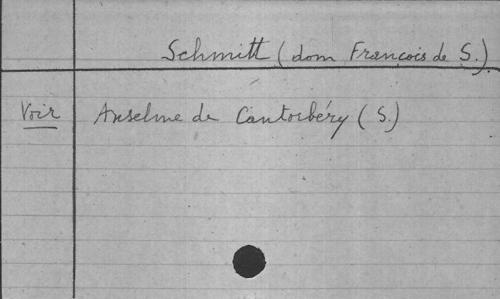 Schmitt (dom François de S.)
Voir Anselme de Cantorbéry (S.)